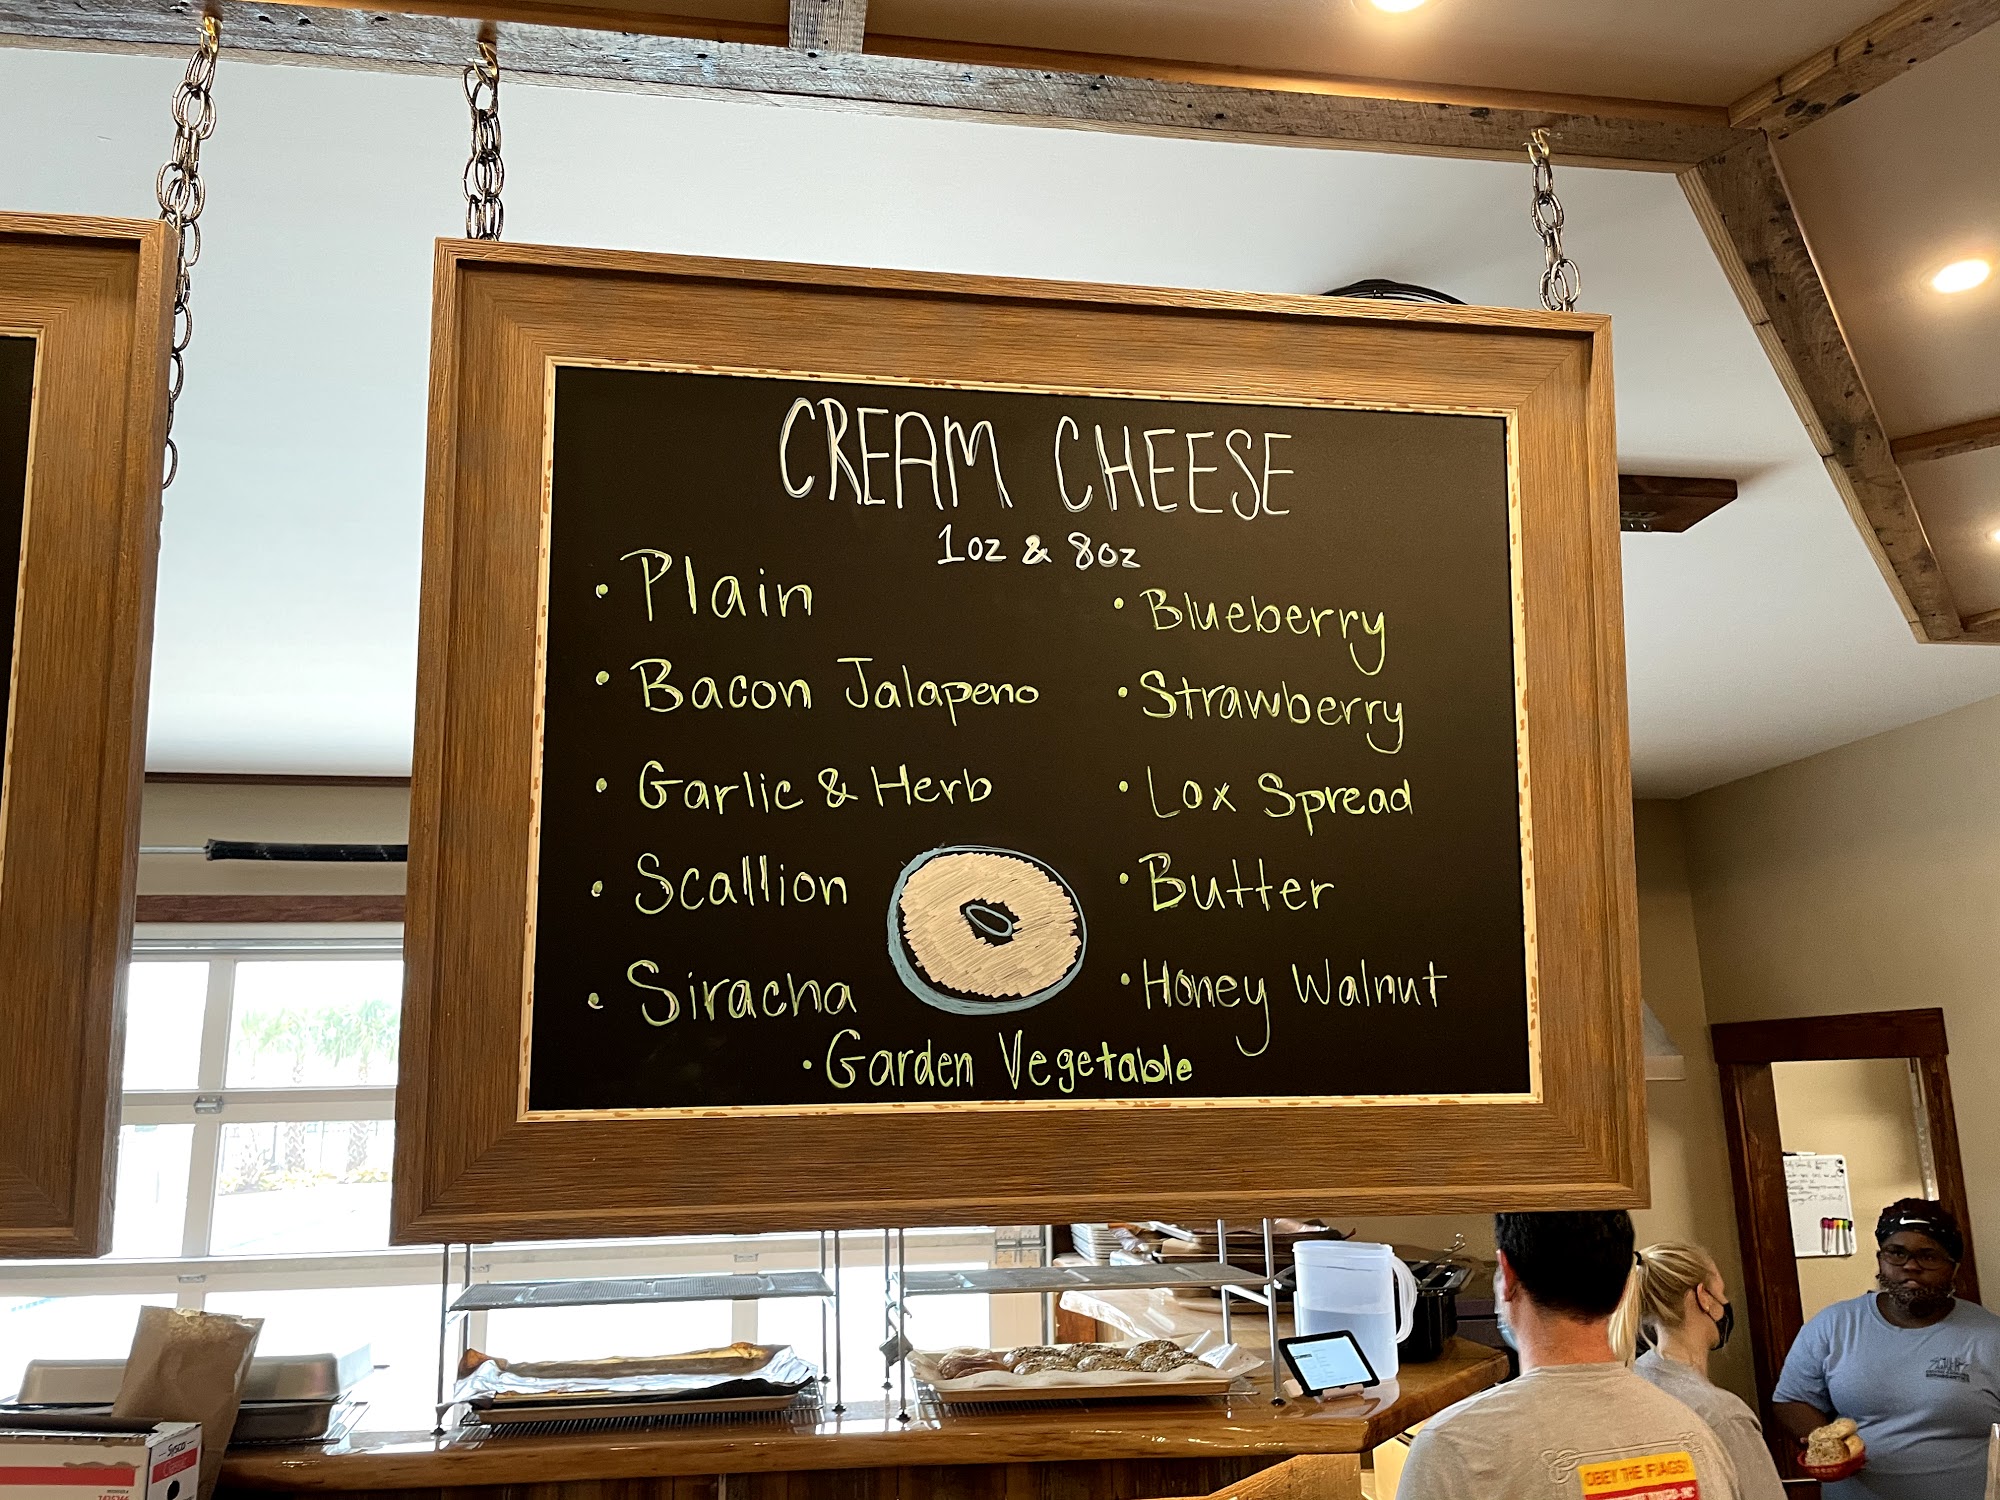 CREAM CHEESE
1oz & 8oz
• Plain
• Bacon Jalapeno
• Garlic & Herb
• Scallion
• Siracha
• Blueberry
• Strawberry
• Lox Spread
• Butter
• Honey Walnut
• Garden Vegetable
Sysco
Classic
OBEY THE FLAGS!